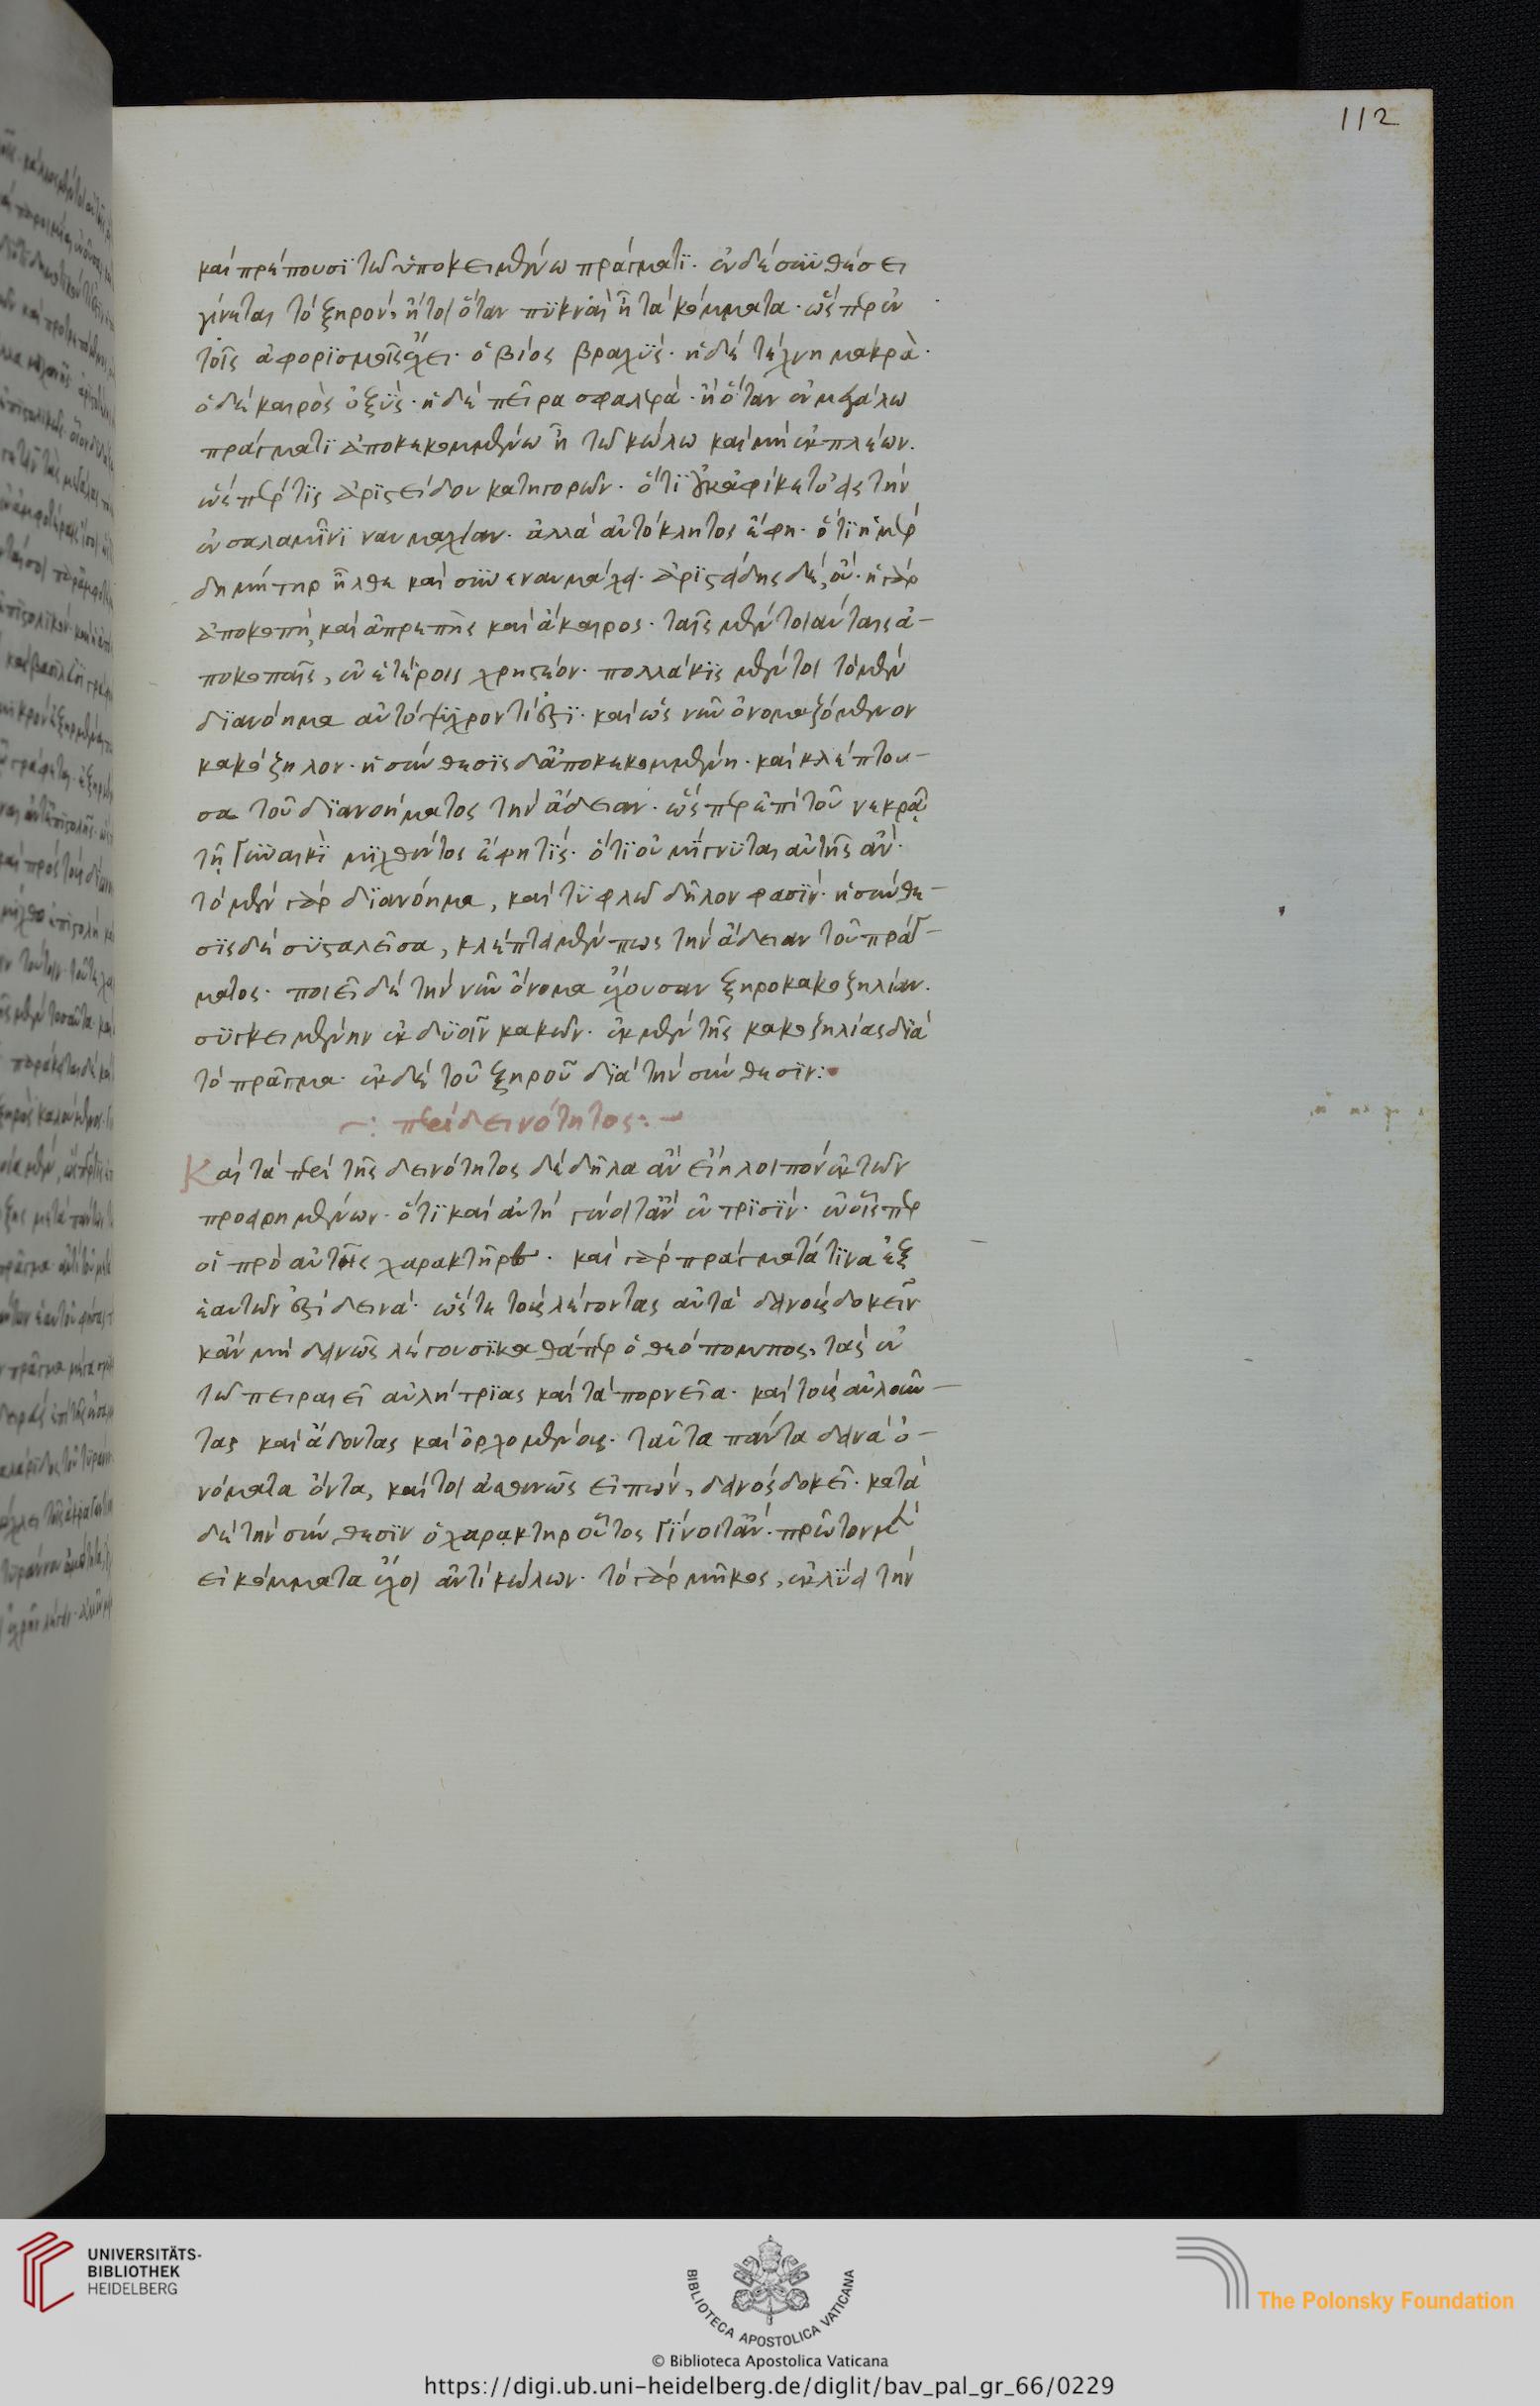 112
καὶ πρέπουσι τῶ ὑποκειμένω πράγματι. ἐν δὲ συνθέσει
γίνεται τὸ ξηρὸν, ἤτοι ὅταν πυκνὰ ἦ τὰ κόμματα. ὥσπερ ἐν
τοῖς ἀφορισμοῖς ἔχει. ὁ βίος βραχύς. ἡ δὲ τέχνη μακρὰ.
ὁ δὲ καιρὸς ὀξύς. ἡ δὲ πεῖρα σφαλερά. ἢ ὅταν ἐν μεγάλω
πράγματι ἀποκεκομμένω ἦ τῶ κώλω καὶ μὴ ἐκπλέων.
ὥσπερ τίς ἀριστείδου κατηγορῶν. ὅτι οὐκ ἀφίκετο εἰς τὴν
ἐν σαλαμῖνι ναυμαχίαν. ἀλλὰ αὐτόκλητος ἔφη. ὅτι ἡ μὲρ
δημήτηρ ἦλθε καὶ συνεναυμάχει. ἀριστείδης δὲ, οὔ. ἡ γὰρ
ἀποκοπὴ, καὶ ἀπρεπὴς καὶ ἄκαιρος. ταῖς μέντοι αὐταις ἀ-
ποκοπαῖς, ἐν ἑτέροις χρηστέον. πολλάκις μέντοι τὸ μὲν
διανόημα αὐτὸ ψύχρον τί ἐστι. καὶ ὡς νῦν ὀνομαζόμενον
κακόζηλον. ἡ σύνθεσις δ' ἀποκεκομμένη. καὶ κλέπτου-
σα τοῦ διανοήματος τὴν ἄδειαν. ὥσπερ ἐπὶ τοῦ νεκρᾶ
τῆ γυναικὶ μιχθέντος ἔφη τίς. ὅτι οὐ μίγνυται αὐτῆς ἄν.
τὸ μὲν γὰρ διανόημα, καὶ τυφλῶ δῆλον φασίν. ἡ σύνθε-
σις δὲ συσταλεῖσα, κλέπτει μέν πως τὴν ἄδειαν τοῦ πράγ-
ματος. ποιεῖ δὲ τὴν νῦν ὄνομα ἔχουσαν ξηροκακοζηλίαν.
συγκειμένην ἐκ δυοῖν κακῶν. ἐκ μὲν τῆς κακοζηλίας διὰ
τὸ πρᾶγμα. ἐκ δὲ τοῦ ξηροῦ διὰ τὴν σύνθεσιν:
περὶ δεινότητος:
Καὶ τὰ περὶ τῆς δεινότητος δὲ δῆλα ἂν εἴη λοιπὸν ἐκ τῶν
προειρημένων. ὅτι καὶ αὐτὴ γένοιτ' ἂν ἐν τρισίν. ἐν οἷσπερ
οἱ πρὸ αὐτῆς χαρακτῆρες. καὶ γὰρ πράγματά τινα ἐξ
ἑαυτῶν ἐστὶ δεινά. ὥστε τοὺς λέγοντας αὐτὰ δεινοὺς δοκεῖν
κἂν μὴ δεινῶς λέγουσι καθάπερ ὁ θεόπομπος, τὰς ἐν
τῶ πειραιεῖ αὐλήτριας καὶ τὰ πορνεῖα. καὶ τοὺς αὐλοῦν-
τας καὶ ἄδοντας καὶ ὀρχομένους. ταῦτα πάντα δεινὰ ὀ-
νόματα ὄντα, καίτοι ἀσθενῶς εἰπών, δεινὸς δοκεῖ. κατὰ
δὲ τὴν σύνθεσιν ὁ χαρακτὴρ οὗτος γίνοιτ' ἄν. πρῶτον μὲν
εἰ κόμματα ἔχοι ἀντὶ κώλων. τὸ γὰρ μῆκος, ἐκλύει τὴν
UNIVERSITÄTS-
BIBLIOTHEK
HEIDELBERG
BIBLIOTECA APOSTOLICA VATICANA
The Polonsky Foundation
© Biblioteca Apostolica Vaticana
https://digi.ub.uni-heidelberg.de/diglit/bav_pal_gr_66/0229